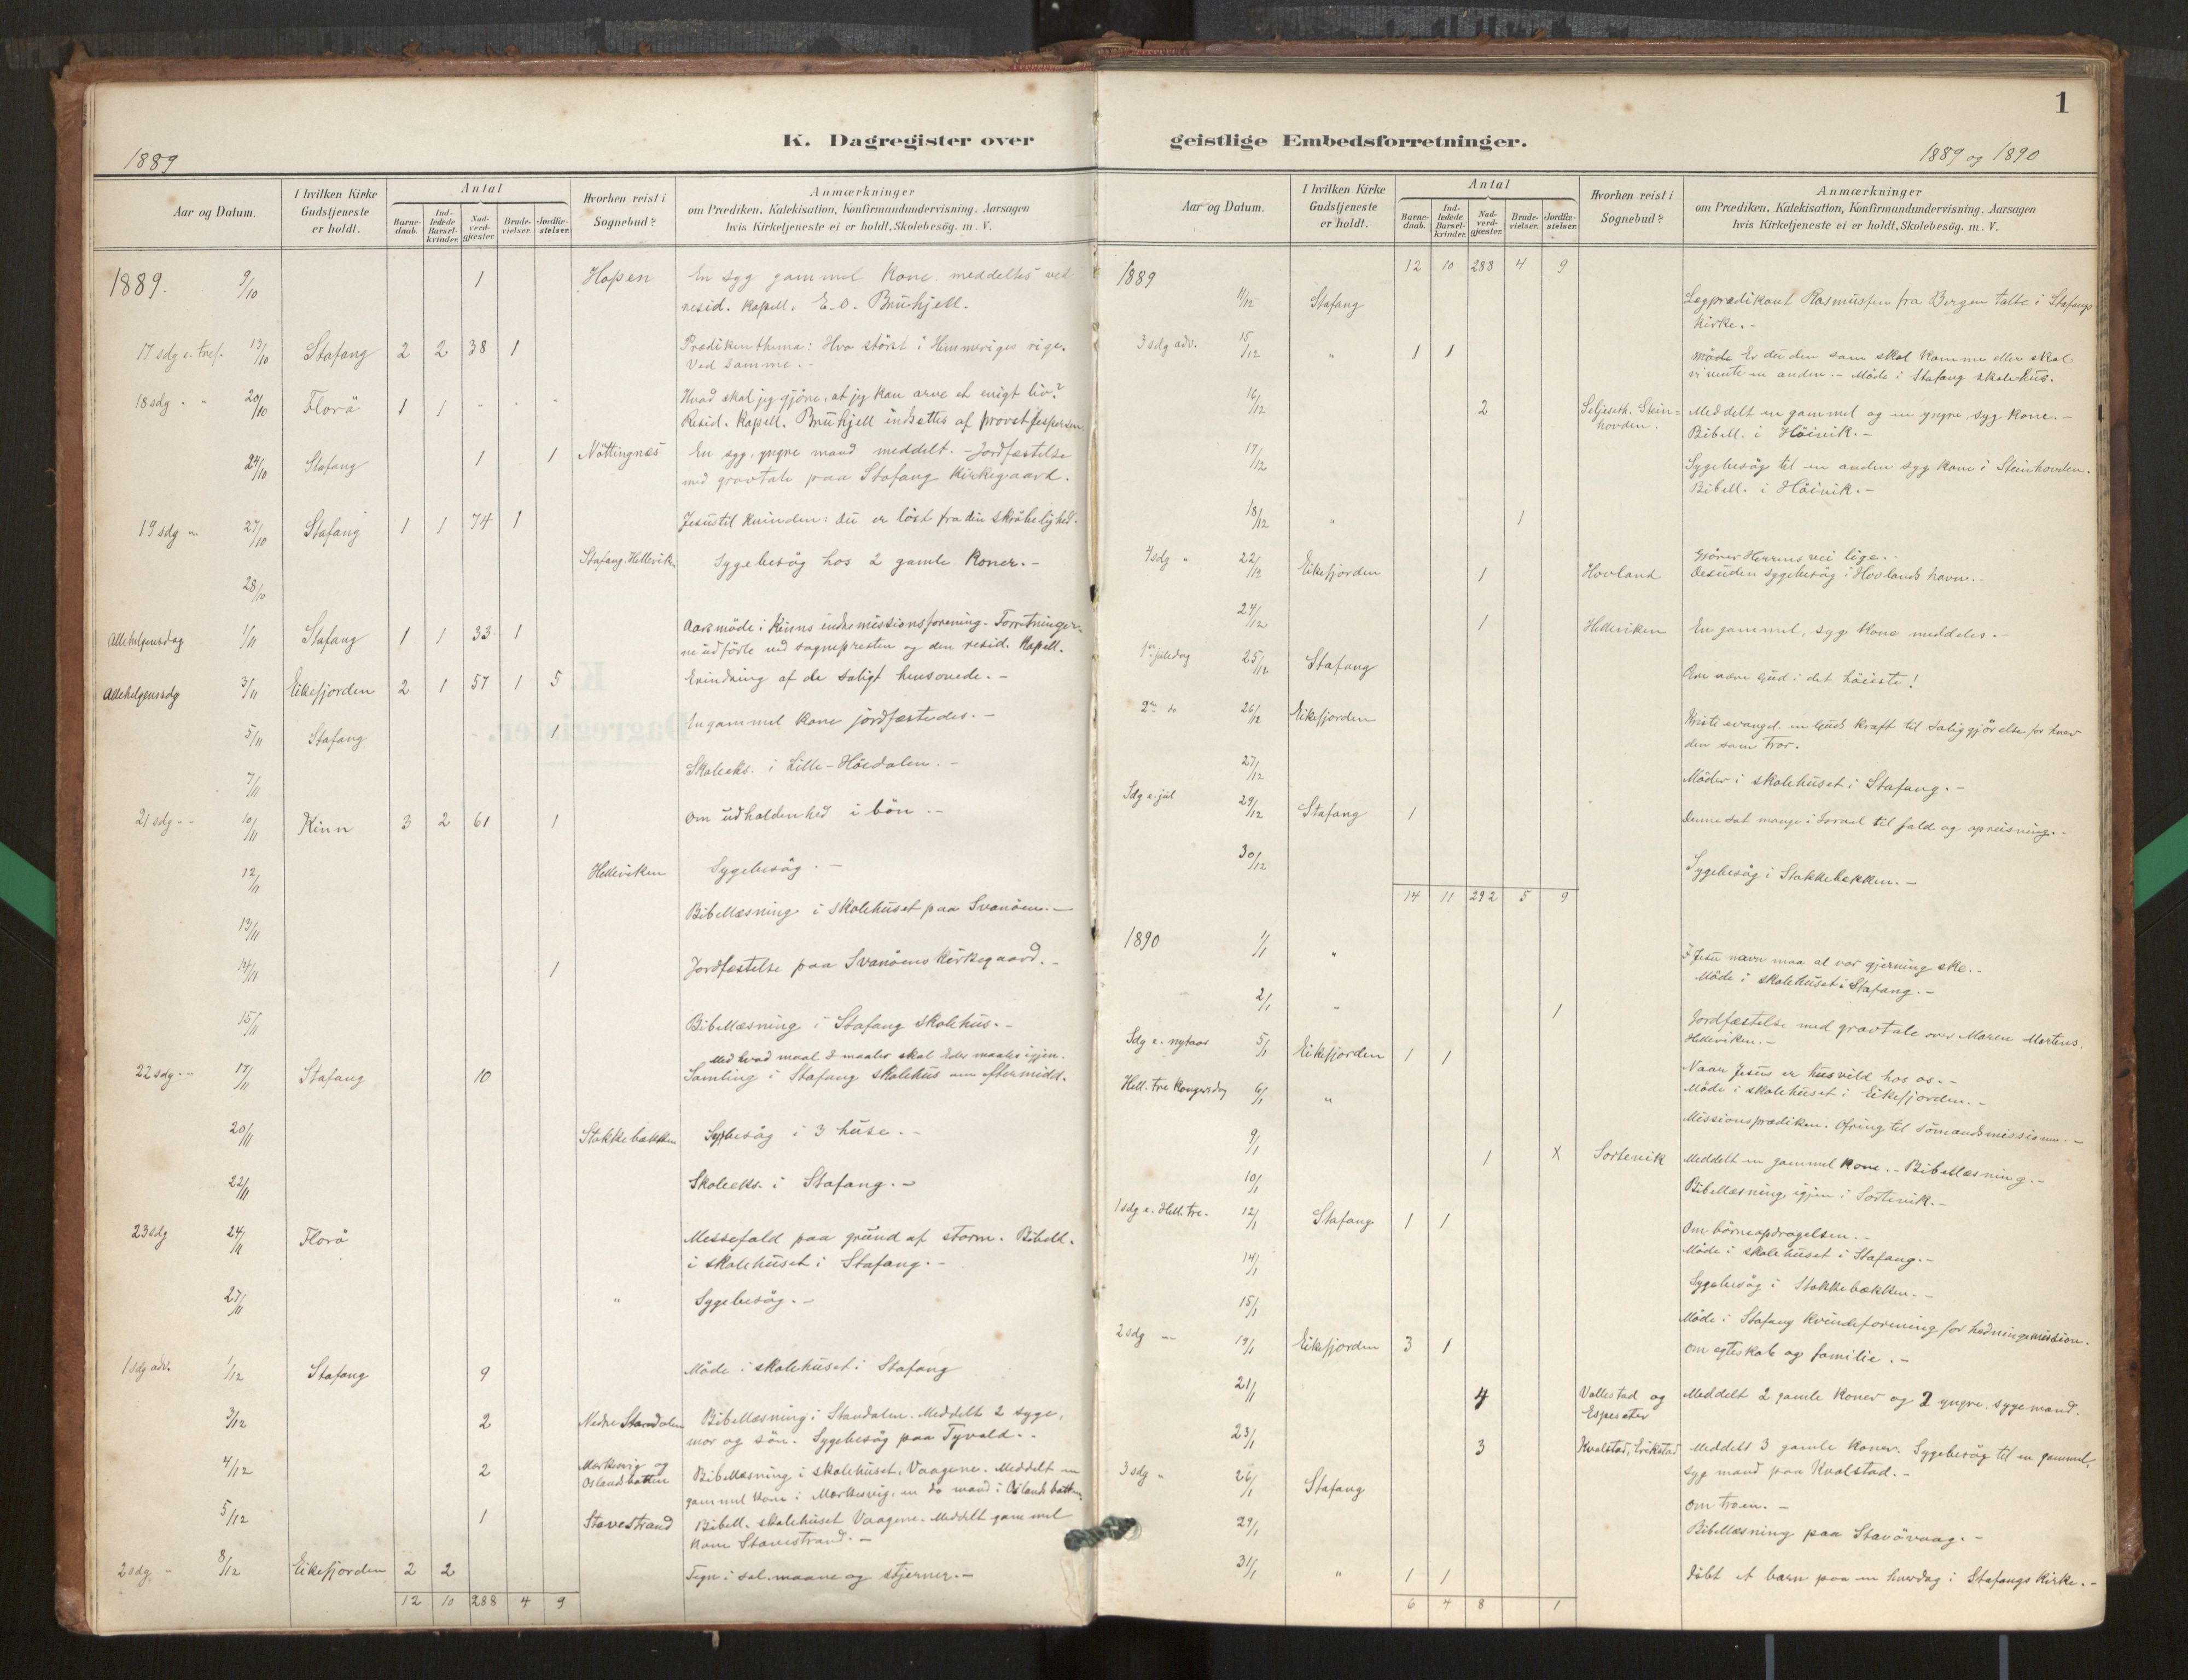 1889
K. Dagregister over
I hvilken Kirke Gudstjeneste er holdt.
Antal
Aar og Datum.
Barnedaab.
Indledede Barselkvinder.
Nadverdgjæster.
Brudevielser.
Jordfæstelser.
Hvorhen reist i Sognebud?
Anmærkninger
om Prædiken, Katekisation, Konfirmandundervisning, Aarsagen
hvis Kirketjeneste ei er holdt, Skolebesøg. m. V.
1889. 9/10 1 Hopen En syg gammel Kone meddeltes ved
resid. Kapell. E. O. Bruhjell.
17 sdg e. tref. 13/10 Stafang 2 2 38 1 Prædikenthema: Hvo störst i Himmeriges rige.
Ved samme. -
18 sdg " " 20/10 Florö 1 1 - - - Hvad skal jeg gjöre, at jeg kan arve et evigt liv?
Resid. Kapell. Bruhjell indsattes af provst Jespersen.
24/10 Stafang 1 1 Nöttingnæs En syg, yngre mand meddelt. - Jordfæstelse
med gravtale paa Stafang Kirkegaard.
19 sdg " 27/10 Stafang 1 1 74 1 Jesus til kvinden: du er löst fra din skröbelighed.
28/10 Stafang, Helleviken Sygebesög hos 2 gamle Koner. -
Allehelgensdag 1/11 Stafang 1 1 33 1 Aarsmöde i Kinns indremissionsforening. Forretninger-
ne udförte ved sognepresten og den resid. Kapell.
Allehelgenssdg 3/11 Eikefjorden 2 1 57 1 5 Erindring af de saligt hensovede. -
5/11 Stafang - 1 En gammel Kone jordfæstedes. -
7/11 Skoleeks. i Lille-Höidalen. -
21 sdg - - 10/11 Kinn 3 2 61 1 Om udholdenhed i bön. -
12/11 Helleviken Sygebesög. -
13/11 Bibellæsning i skolehuset paa Svanöen. -
14/11 1 Jordfæstelse paa Svanöens Kirkegaard. -
15/11 Bibellæsning i Stafang skolehus. -
22 sdg. - 17/11 Stafang 10 Med hvad maal I maaler skal Eder maales igjen.
Samling i Stafang skolehus om eftermidd.
20/11 Stokkebækken Sygebesög i 3 huse. -
22/11 Skoleeks. i Stafang. -
23 sdg 24/11 Florö Messefald paa grund af storm. Bibell.
i skolehuset i Stafang. -
27/11 " Sygebesög. -
1 sdg adv. 1/12 Stafang 9 Möde i skolehuset i Stafang
3/12 2 Nedre Standalen Bibellæsning i Standalen. Meddelt 2 syge,
mor og sön. Sygebesög paa Tyvold. -
4/12 2 Markevig og Oslandsbotten Bibellæsning i skolehuset, Vaagene. Meddelt en
gammel Kone i Markevig, en do mand i Oslandsbotten
5/12 1 Stavestrand Bibell. skolehuset Vaagene. Meddelt gammel
Kone Stavestrand. -
2 sdg " 8/12 Eikefjorden 2 2 Tegn i sol, maane og stjerner. -
12 10 288 4 9
1
geistlige Embedsforretninger.
1889 og 1890
Aar og Datum.
I hvilken Kirke Gudstjeneste er holdt.
Antal
Barnedaab.
Indledede Barselkvinder.
Nadverdgjæster.
Brudevielser.
Jordfæstelser.
Hvorhen reist i Sognebud?
Anmærkninger
om Prædiken, Katekisation, Konfirmandundervisning, Aarsagen
hvis Kirketjeneste ei er holdt, Skolebesøg. m. V.
12 10 288 4 9
1889
11/12 Stafang Lægprædikant Rasmussen fra Bergen talte i Stafangs
Kirke. -
3 sdg adv. 15/12 " 1 1 Er du den som skal komme eller skal
vi vente en anden. - Möde i Stafang skolehus.
16/12 2 Seljeseth. Steinhovden. Meddelt en gammel og en yngre, syg Kone. -
Bibell. i Höivik. -
17/12 Sygebesög til en anden syg Kone i Steinhovden.
Bibell. i Höivik. -
18/12 " 1
4 sdg " 22/12 Eikefjorden 1 Hovland Gjörer Herrens vei lige. -
Desuden sygebesög i Hovlands havn. -
24/12 1 Helleviken En gammel, syg Kone meddeles. -
1ste juledag 25/12 Stafang Ære være Gud i det höieste!
2den do 26/12 Eikefjorden Kristi evangel. en Guds Kraft til saliggjörelse for hver
den som tror.
27/12 Möder i skolehuset i Stafang. -
Sdg e. jul 29/12 Stafang 1 Denne sat mange i Israel til fald og opreisning. -
30/12 Sygebesög i Stokkebækken. -
14 11 292 5 9
1890 1/1 " I Jesu navn maa al vor gjerning ske. -
Möde i skolehuset i Stafang. -
2/1 " 1 Jordfæstelse med gravtale over Maren Martens.
Helleviken. -
Sdg e. nytaar 5/1 Eikefjorden 1 1 Naar Jesus er husvild hos os. -
Möde i skolehuset i Eikefjorden. -
Hell. tre Kongersdag 6/1 " Missionsprædiken. Ofring til sömandsmissionen. -
9/1 1 X Sortevik Meddelt en gammel Kone. - Bibellæsning. -
10/1 Bibellæsning igjen i Sortevik. -
1 sdg e. Hell. tre. 12/1 Stafang 1 1 Om börneopdragelsen. -
Möde i skolehuset i Stafang. -
14/1 Sygebesög i Stokkebækken. -
15/1 Möde i Stafang Kvindeforening for hedningemission.
2 sdg - - 19/1 Eikefjorden 3 1 Om egteskab og familie. -
21/1 4 Vallestad og Espeseter Meddelt 2 gamle Koner og 2 yngre, syge mænd.
23/1 3 Kvalstad, Erikstad Meddelt 3 gamle Koner. Sygebesög til en gammel,
syg mand paa Kvalstad. -
3 sdg " 26/1 Stafang Om troen. -
29/1 Bibellæsning paa Stavövaag. -
31/1 " 1 1 Döbt et barn paa en hverdag i Stafangs Kirke. -
6 4 8 1